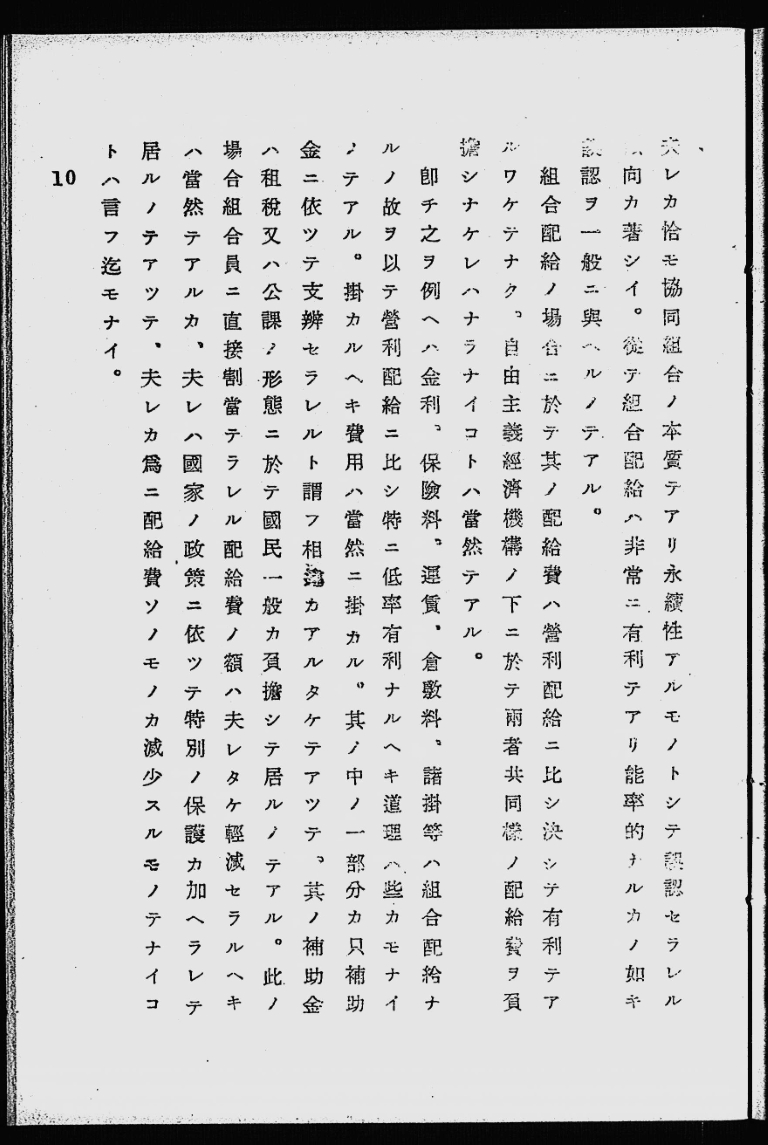 夫レカ恰モ協同組合ノ本質テアリ永續性アルモノトシテ誤認セラレル
傾向カ著シイ。從テ組合配給ハ非常ニ有利テアリ能率的ナルカノ如キ
誤認ヲ一般ニ與ヘルノテアル。
組合配給ノ場合ニ於テ其ノ配給費ハ營利配給ニ比シ決シテ有利テア
ルワケテナク、自由主義經濟機構ノ下ニ於テ兩者共同樣ノ配給費ヲ負
擔シナケレハナラナイコトハ當然テアル。
卽チ之ヲ例ヘハ金利、保險料、運賃、倉敷料、諸掛等ハ組合配給ナ
ルノ故ヲ以テ營利配給ニ比シ特ニ低率有利ナルヘキ道理ハ些カモナイ
ノテアル。掛カルヘキ費用ハ當然ニ掛カル。其ノ中ノ一部分カ只補助
金ニ依ツテ支辨セラレルト謂フ相違カアルタケテアツテ、其ノ補助金
ハ租稅又ハ公課ノ形態ニ於テ國民一般カ負擔シテ居ルノテアル。此ノ
場合組合員ニ直接割當テラレル配給費ノ額ハ夫レタケ輕減セラルヘキ
ハ當然テアルカ、夫レハ國家ノ政策ニ依ツテ特別ノ保護カ加ヘラレテ
居ルノテアツテ、夫レカ爲ニ配給費ソノモノカ減少スルモノテナイコ
トハ言フ迄モナイ。
10